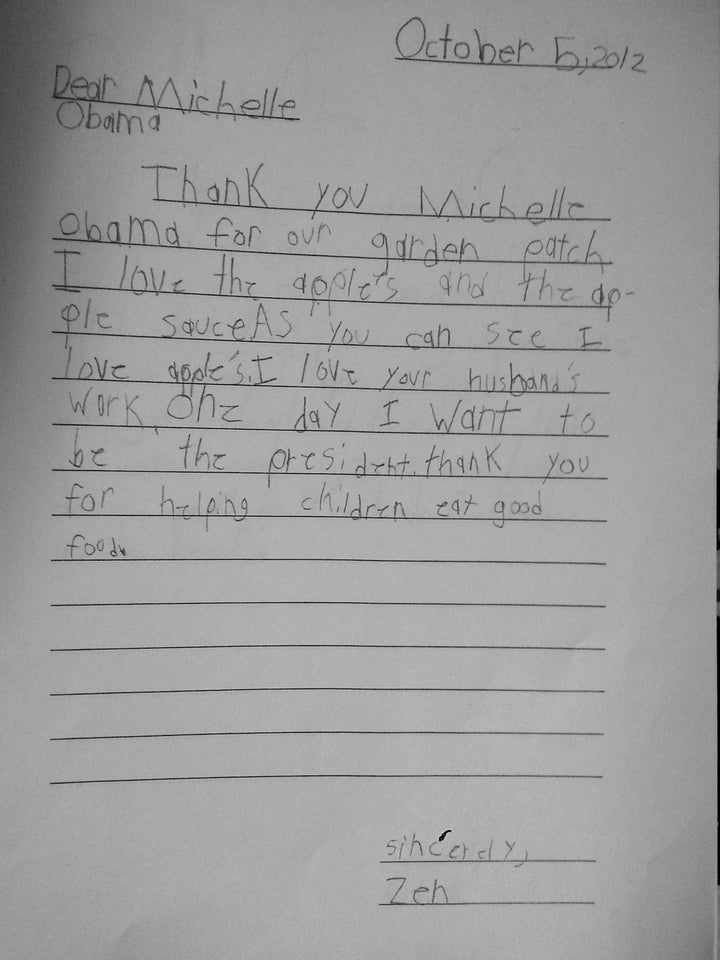 October 5, 2012
Dear Michelle
Obama
Thank you Michelle
Obama for our garden patch
I love the apple's and the ap-
ple sauce As you can see I
love apple's. I love your husband's
work. One day I want to
be the president. thank you
for helping children eat good
food.
sincerely,
Zeh